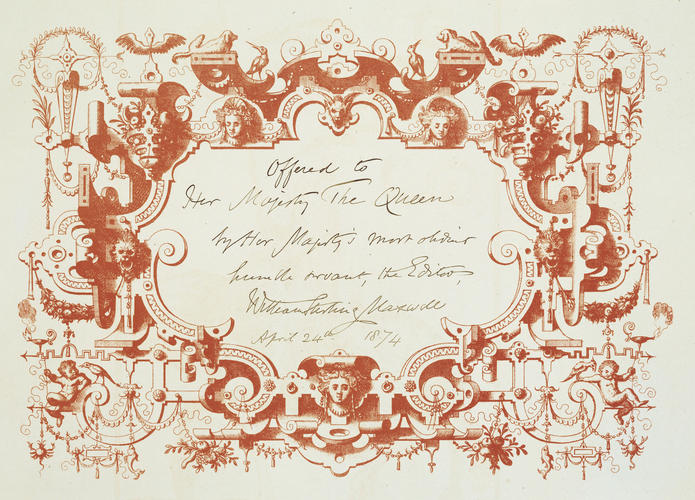 Offered to
Her Majesty The Queen
by Her Majesty's most obedient
humble servant, the Editor,
William Stirling Maxwell
April 24th 1874